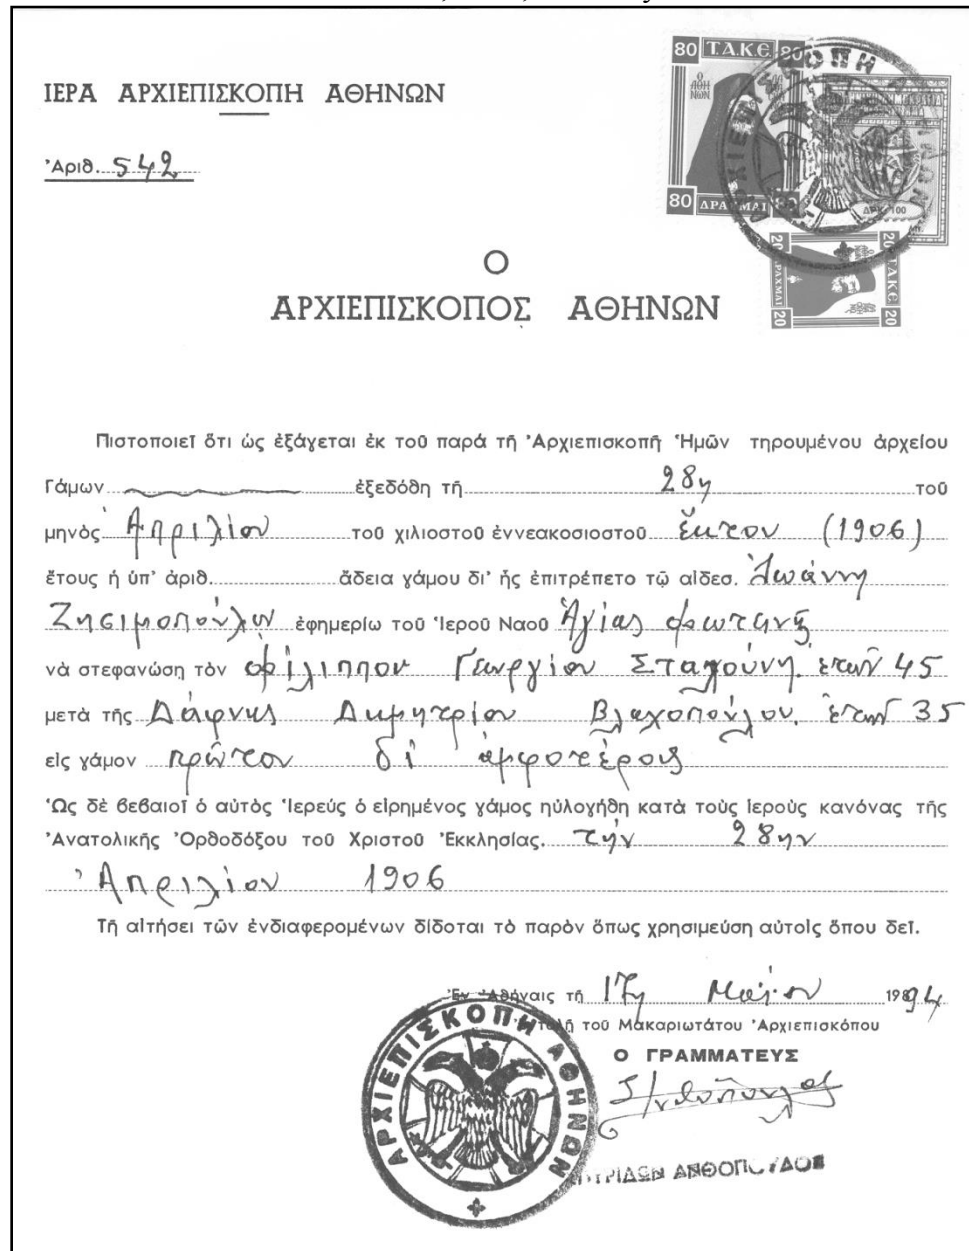 ΙΕΡΑ ΑΡΧΙΕΠΙΣΚΟΠΗ ΑΘΗΝΩΝ
Ἀριθ. 542
80 Τ.Α.Κ.Ε. 80
80 ΔΡΑΧΜΑΙ 80
ΔΡΧ 100
20 Τ.Α.Κ.Ε. 20
20 ΔΡΑΧΜΑΙ 20
Ο
ΑΡΧΙΕΠΙΣΚΟΠΟΣ ΑΘΗΝΩΝ
Πιστοποιεῖ ὅτι ὡς ἐξάγεται ἐκ τοῦ παρά τῆ Ἀρχιεπισκοπῆ Ἡμῶν τηρουμένου ἀρχείου
Γάμων ἐξεδόθη τῆ 28η τοῦ
μηνός Ἀπριλίου τοῦ χιλιοστοῦ ἐννεακοσιοστοῦ ἕκτου (1906)
ἔτους ἡ ὑπ' ἀριθ. ἄδεια γάμου δι' ἧς ἐπιτρέπετο τῷ αἰδεσ. Ἰωάννη
Ζησιμοπούλου ἐφημερίω τοῦ Ἱεροῦ Ναοῦ Ἁγίας Φωτεινῆς
νὰ στεφανώση τὸν Φίλιππον Γεωργίου ἐτῶν 45
μετὰ τῆς Δάφνης Δημητρίου Βλαχοπούλου. ἐτῶν 35
εἰς γάμον πρῶτον δι' ἀμφοτέρους
Ὡς δὲ βεβαιοῖ ὁ αὐτὸς Ἱερεύς ὁ εἰρημένος γάμος ηὐλογήθη κατὰ τοὺς ἱεροὺς κανόνας τῆς
Ἀνατολικῆς Ὀρθοδόξου τοῦ Χριστοῦ Ἐκκλησίας. τὴν 28ην
Ἀπριλίου 1906
Τῆ αἰτήσει τῶν ἐνδιαφερομένων δίδοται τὸ παρὸν ὅπως χρησιμεύση αὐτοῖς ὅπου δεῖ.
Ἐν Ἀθήναις τῆ 17η Μαΐου 1994
τοῦ Μακαριωτάτου Ἀρχιεπισκόπου
Ο ΓΡΑΜΜΑΤΕΥΣ
ΑΡΧΙΕΠΙΣΚΟΠΗ ΑΘΗΝΩΝ
ΑΝΘΟΠΟΥΛΟΣ